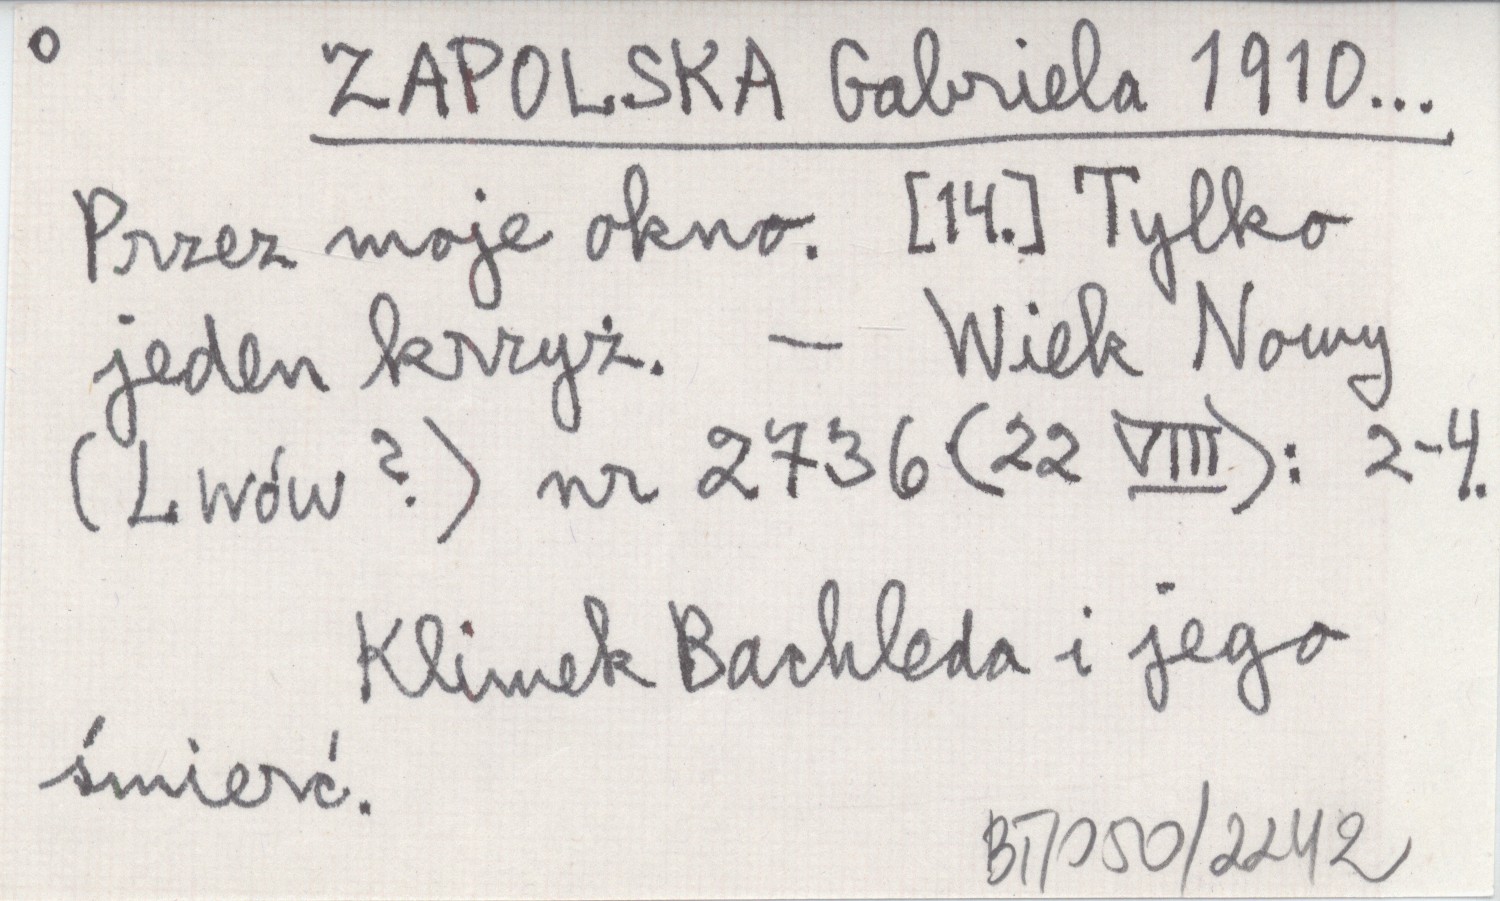 o ZAPOLSKA Gabriela 1910...
Przez moje okno. [14.] Tylko
jeden krzyż. — Wiek Nowy
(Lwów?) nr 2736 (22 VIII): 2-4.
Klimek Bachleda i jego
śmierć.
BT/050/2242